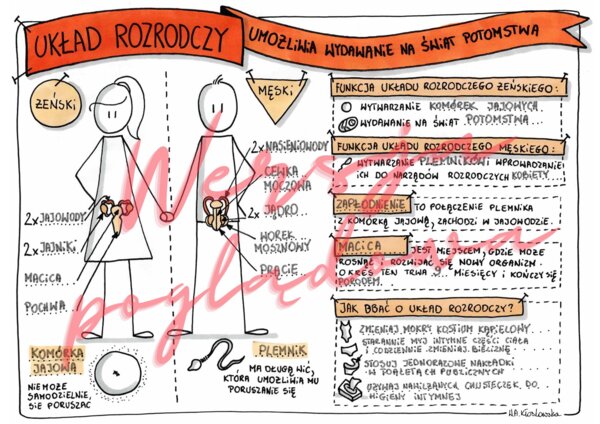 UKŁAD ROZRODCZY
UMOŻLIWIA WYDAWANIE NA ŚWIAT POTOMSTWA
ŻEŃSKI
MĘSKI
2x JAJOWODY
2x JAJNIKI
MACICA
POCHWA
2x NASIENIOWODY
CEWKA
MOCZOWA
2x JĄDRO
WOREK
MOSZNOWY
PRĄCIE
KOMÓRKA
JAJOWA
NIE MOŻE
SAMODZIELNIE,
SIĘ PORUSZAĆ
PLEMNIK
MA DŁUGĄ WIĆ,
KTÓRA UMOŻLIWIA MU
PORUSZANIE SIĘ
FUNKCJA UKŁADU ROZRODCZEGO ŻEŃSKIEGO:
WYTWARZANIE KOMÓREK JAJOWYCH
WYDAWANIE NA ŚWIAT POTOMSTWA
FUNKCJA UKŁADU ROZRODCZEGO MĘSKIEGO:
WYTWARZANIE PLEMNIKÓW I WPROWADZANIE
ICH DO NARZĄDÓW ROZRODCZYCH KOBIETY
ZAPŁODNIENIE TO POŁĄCZENIE PLEMNIKA
Z KOMÓRKĄ JAJOWĄ, ZACHODZI W JAJOWODZIE.
MACICA JEST MIEJSCEM, GDZIE MOŻE
ROSNĄĆ I ROZWIJAĆ SIĘ NOWY ORGANIZM.
OKRES TEN TRWA 9 MIESIĘCY I KOŃCZY SIĘ
PORODEM.
JAK DBAĆ O UKŁAD ROZRODCZY?
ZMIENIAJ MOKRY KOSTIUM KĄPIELOWY
STARANNIE MYJ INTYMNE CZĘŚCI CIAŁA
I CODZIENNIE ZMIENIAJ BIELIZNĘ
STOSUJ JEDNORAZOWE NAKŁADKI
W TOALETACH PUBLICZNYCH
UŻYWAJ NAWILŻANYCH CHUSTECZEK DO
HIGIENY INTYMNEJ
Wersja
poglądowa